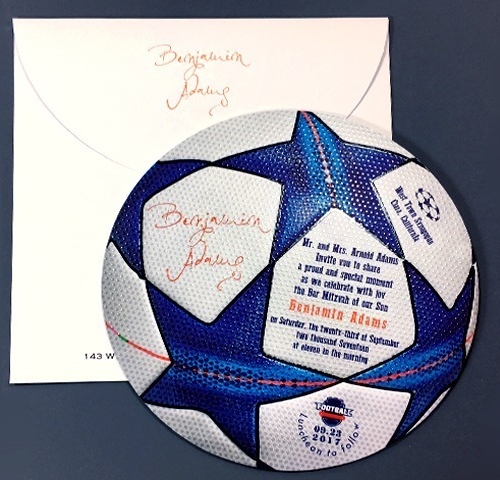 Benjamin
Adams
Benjamin
Adams
West Town Synagogue
Cort, California
Mr. and Mrs. Arnold Adams
Invite you to share
a proud and special moment
as we celebrate with joy
the Bar Mitzvah of our Son
Benjamin Adams
on Saturday, the twenty-third of September
Two thousand Seventeen
at eleven in the morning
143 W
FOOTBALL
09.23
2017
Luncheon to follow